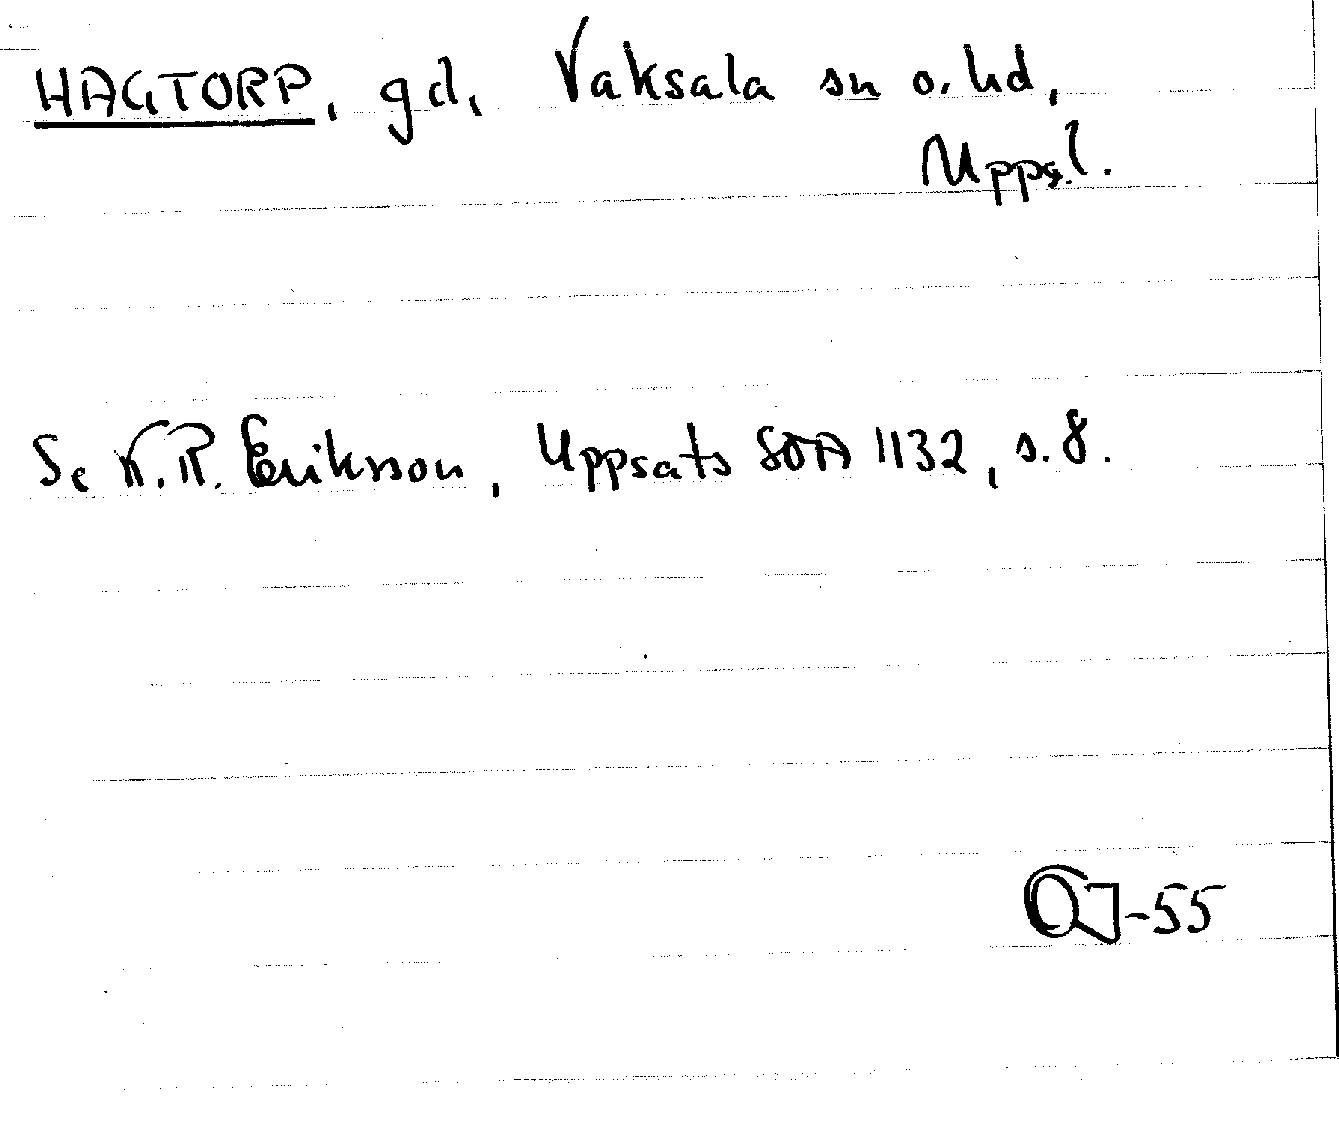 HAGTORP, gd, Vaksala sn o. hd,
Uppsl.
Se K.R. Eriksson, Uppsats SOA 1132, s. 8.
OJ-55